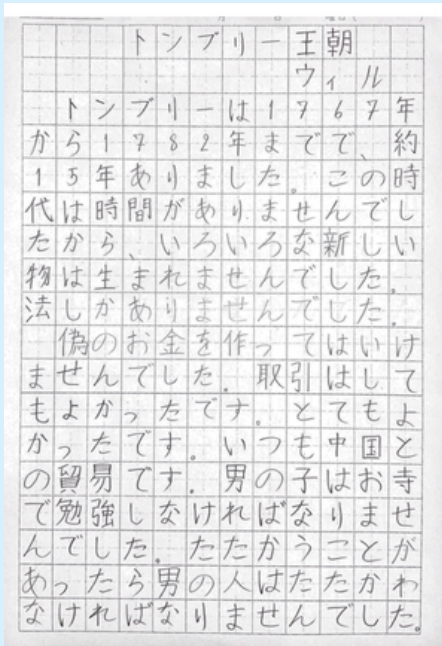 トンブリー王朝
ウィル
トンブリーは1767年
から1782年までで、約
15年ありました。この時
代は時間がありませんでし
たから、いろいろな新しい
物は生まれませんでした。
法しかありませんでした。
偽のお金を作ってはいけ
ませんでした。取引はして
もよかったです。とてもよ
かったです。いつも中国と
の貿易です。男の子はお寺
で勉強しなければなりませ
んでした。たたかうことが
あったら男の人はたたかわ
なければなりませんでした。